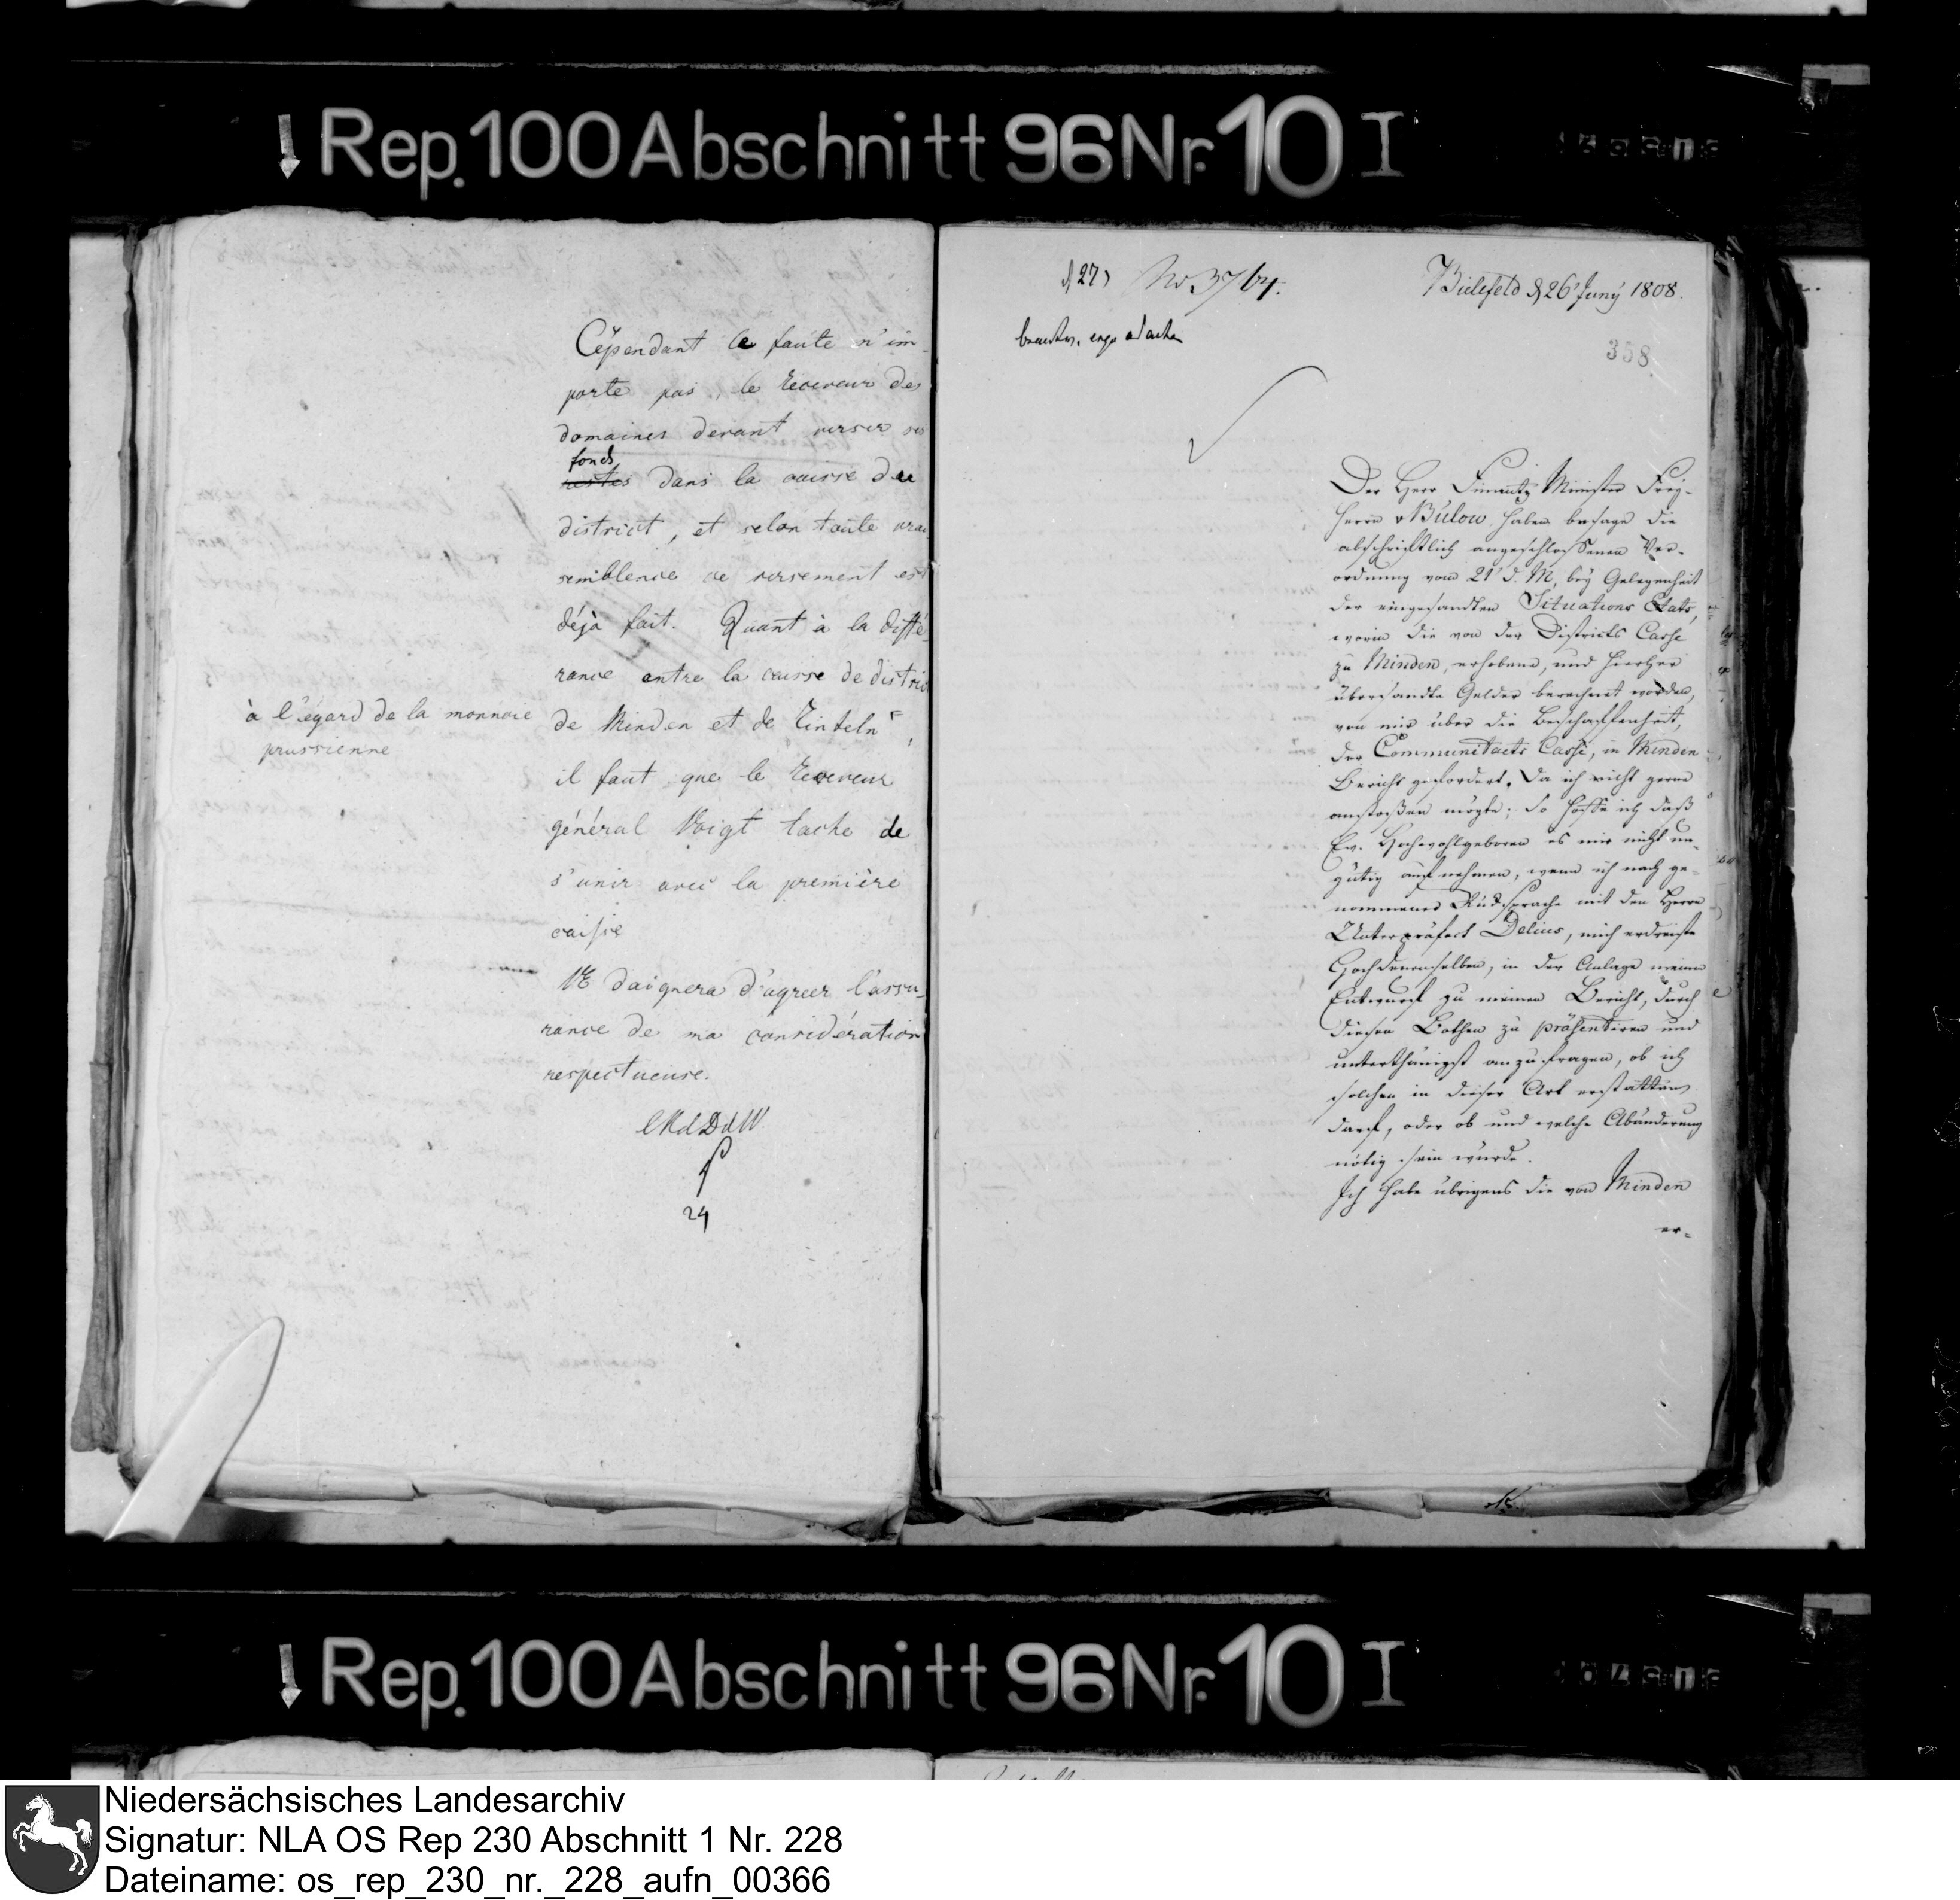 Rep. 100 Abschnitt 96 Nr. 10 I
Cépendant ce faute n'im-
porte pas, le Receveur des
domaines devant verser ses
fonds
restes dans la caisse du
district, et selon toute vrai
semblence ce versement est
déjà fait. Quant à la diffé
rance entre la caisse de district
à l'egard de la monnoie
prussienne
de Minden et de Rinteln,
il faut que le Receveur
général Voigt tache de
s'unir avec la première
caisse
VE daignera d'agreer l'assu-
rance de ma considération
respectueuse.
24
27 No 3764.
Bielefeld d 26 Juny 1808.
358
Der Herr Finantz Minister Frey-
herrn v Bülow haben besage die
abschriftlich angeschlossenen Ver-
ordnung vom 21 d. M, bey Gelegenheit
der eingesandten Situations Etats,
worin die von der Districts Casse
zu Minden, erhobene, und hierher
übersandte Gelder berechnet worden,
von mir über die Beschaffenheit,
der Communitaets Casse, in Minden
Bericht gefordert. Da ich nicht gerne
anstoßen mögte; so hoffe ich daß
Ew. Hochwohlgeboren es mir nicht un-
gütig aufnehmen, wenn ich nach ge-
nommener Rücksprache mit den Herrn
Unterpräfect Delius, mich erdreiste
Hochdenenselben, in der Anlage meinen
Entwurf zu meinen Bericht, durch
diesen Bothen zu präsentiren und
unterthänigst anzufragen, ob ich
solchen in dieser Art erstatten
darf, oder ob und welche Abänderung
nötig sein würde.
Ich habe übrigens die von Minden
er-
Rep. 100 Abschnitt 96 Nr. 10 I
Niedersächsisches Landesarchiv
Signatur: NLA OS Rep 230 Abschnitt 1 Nr. 228
Dateiname: os_rep_230_nr._228_aufn_00366